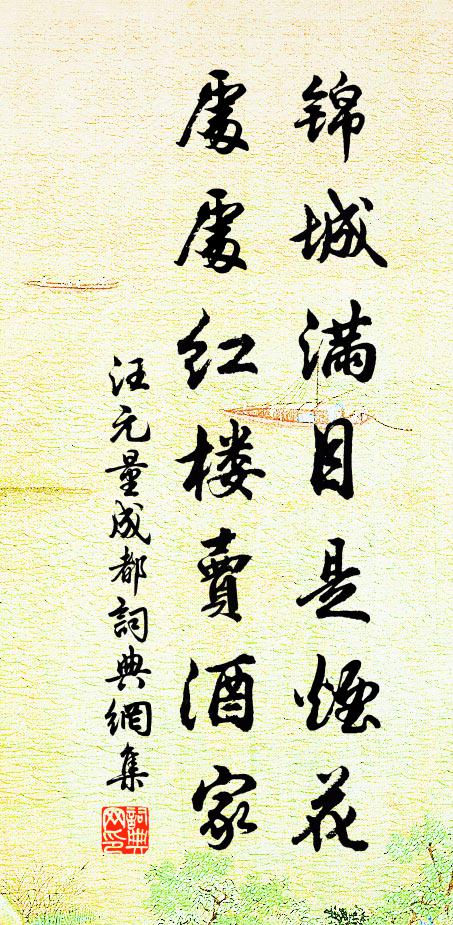 锦城满目是烟花
處處红楼賣酒家
汪元量成都詞典網集
詞典网印